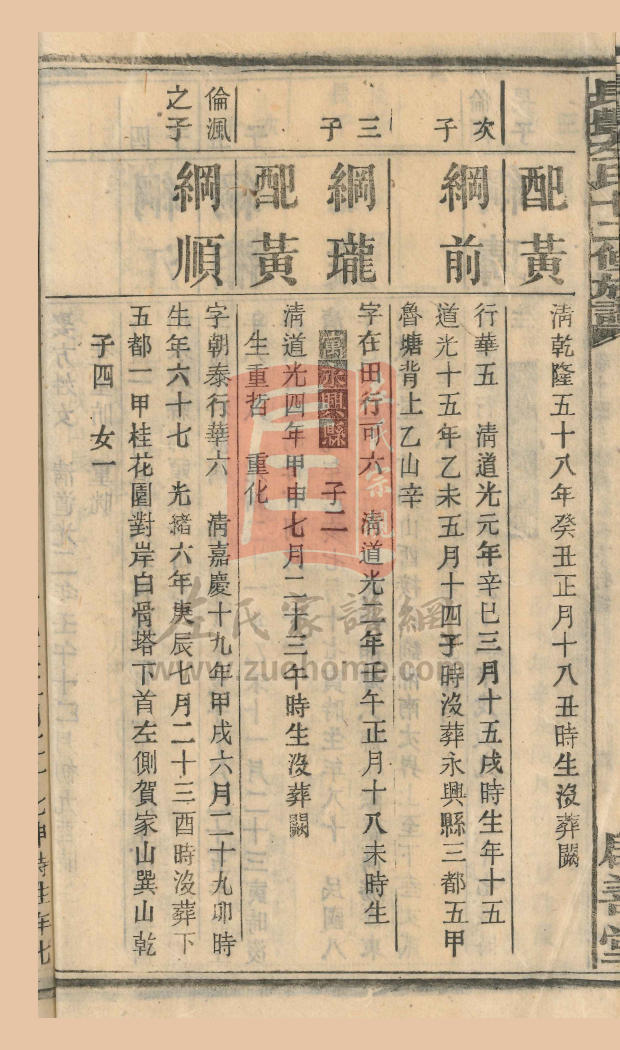 配黃
清乾隆五十八年癸丑正月十八丑時生沒葬闕
次子
綱前
行華五 清道光元年辛巳三月十五戌時生年十五
道光十五年乙未五月十四子時沒葬永興縣三都五甲
魯塘背上乙山辛
三子
綱瓏
字在田行可六 清道光二年壬午正月十八未時生
萬永興縣 子二
配黃
清道光四年甲申七月二十三午時生沒葬闕
生重哲 重化
倫渢之子
綱順
字朝泰行華六 清嘉慶十九年甲戌六月二十九卯時
生年六十七 光緒六年庚辰七月二十三酉時沒葬下
五都一甲桂花園對岸白骨塔下首左側賀家山巽山乾
子四 女一
左氏家譜網
www.zuohome.com